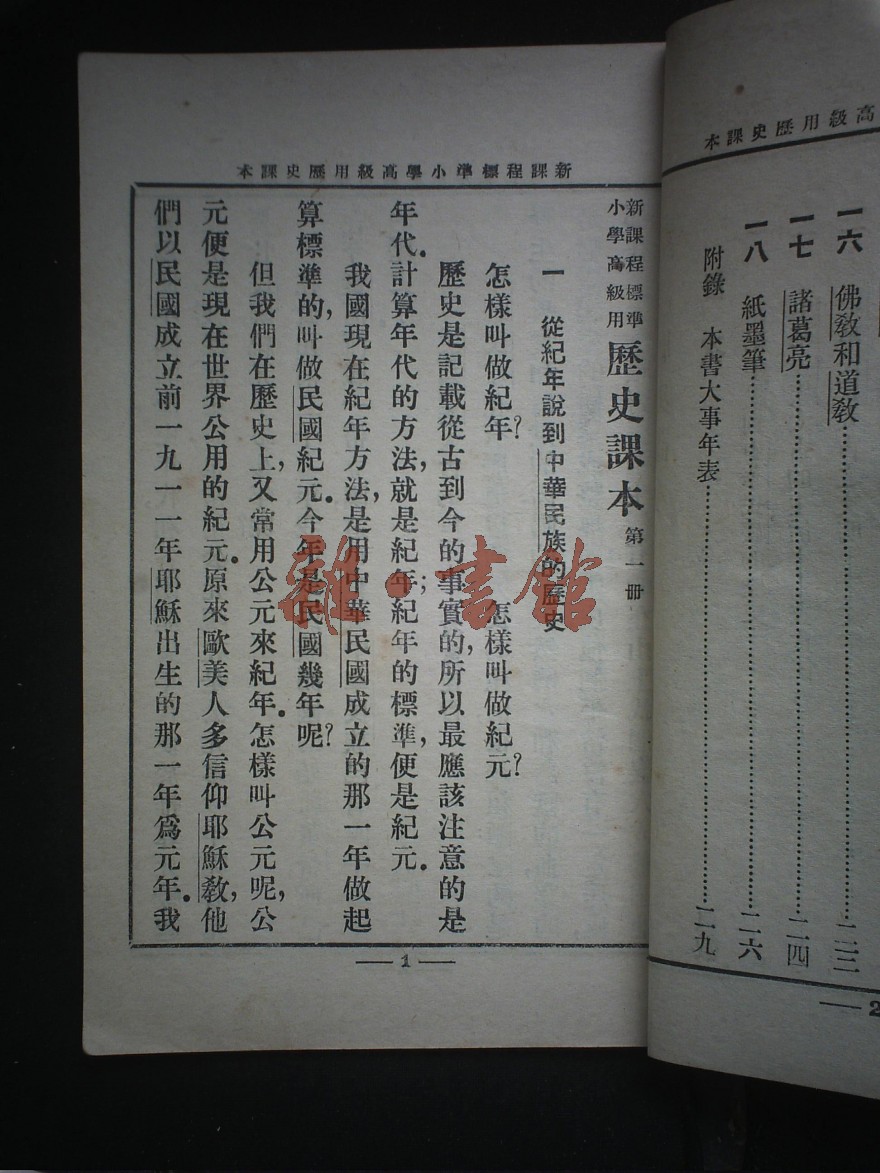 高級用歷史課本
一六 佛教和道教……二二
一七 諸葛亮……二四
一八 紙墨筆……二六
附錄 本書大事年表……二九
— 2
新課程標準小學高級用歷史課本
新課程標準
小學高級用
歷史課本 第一冊
一 從紀年說到中華民族的歷史
怎樣叫做紀年? 怎樣叫做紀元?
歷史是記載從古到今的事實的,所以最應該注意的是
年代.計算年代的方法,就是紀年;紀年的標準,便是紀元.
我國現在紀年方法,是用中華民國成立的那一年做起
算標準的,叫做民國紀元.今年是民國幾年呢?
但我們在歷史上,又常用公元來紀年.怎樣叫公元呢,公
元便是現在世界公用的紀元.原來歐美人多信仰耶穌教,他
們以民國成立前一九一一年耶穌出生的那一年爲元年.我
— 1 —
雜·書館